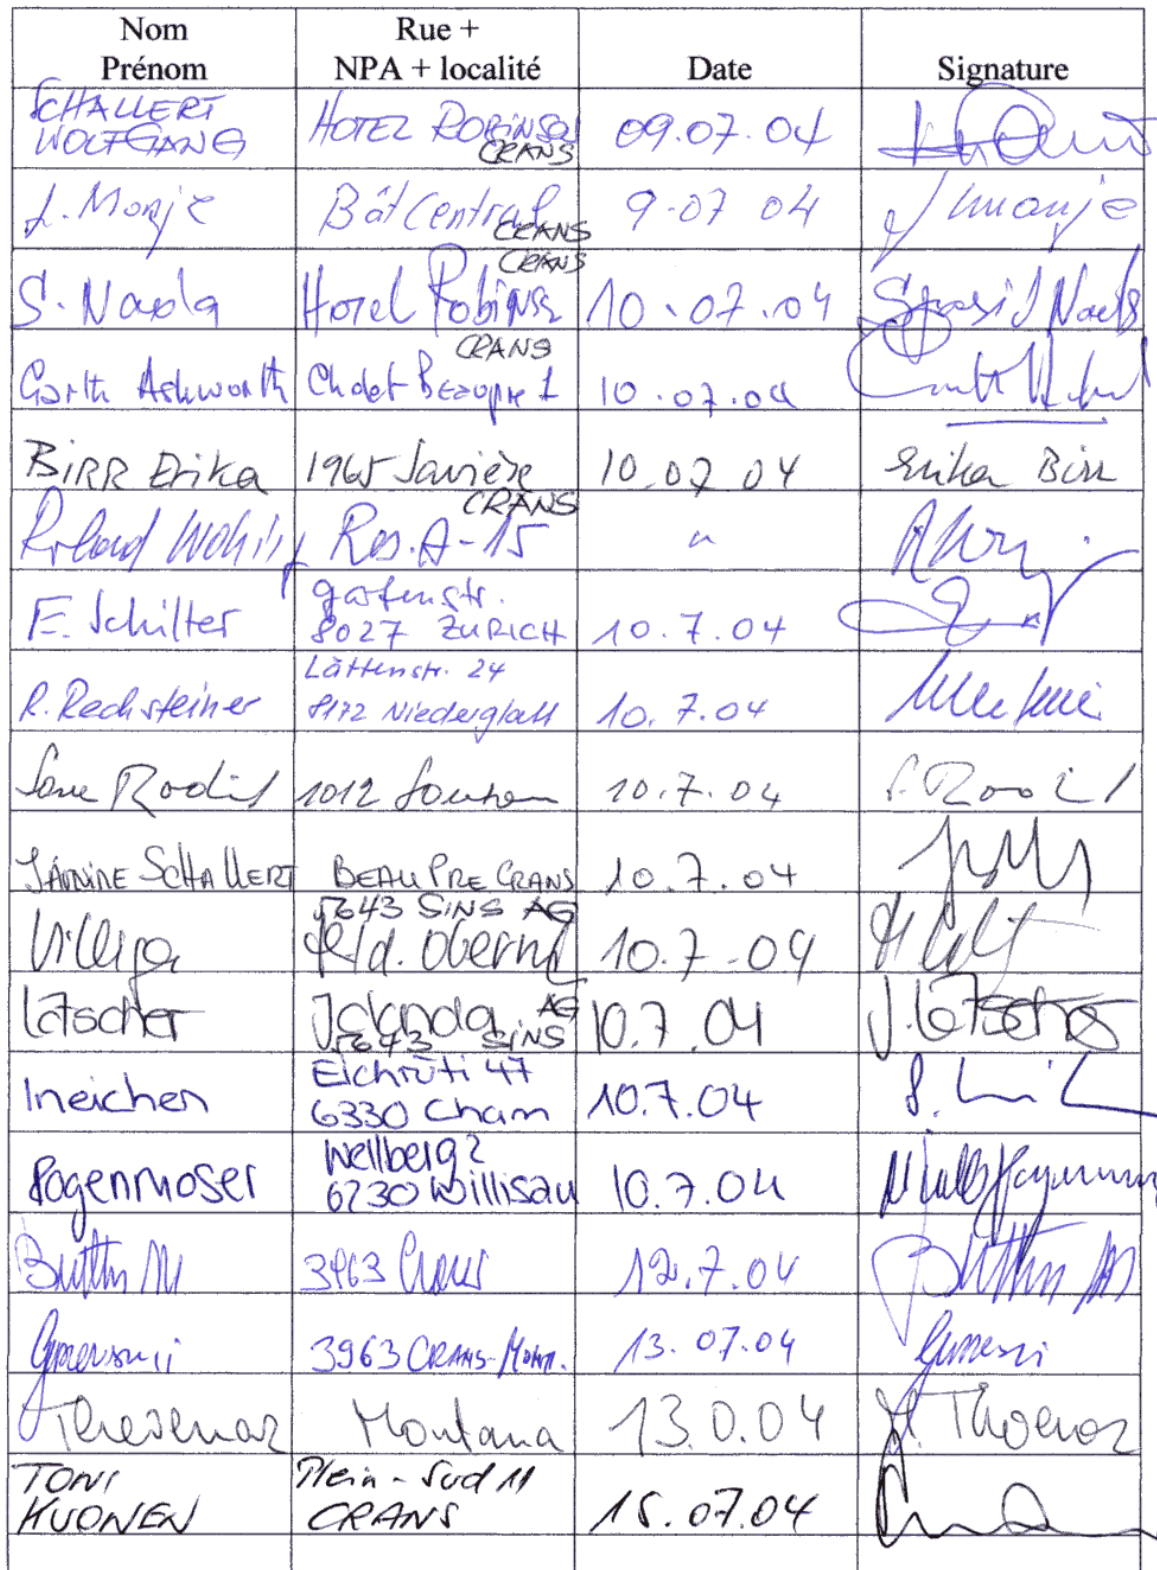 Nom
Prénom
Rue +
NPA + localité
Date
Signature
SCHALLERT
WOLFGANG
HOTEL ROBINSON
CRANS
09.07.04
L. Monje
Bât Central
CRANS
9-07 04
Lmonje
S. Nada
CRANS
Hotel Robinson
10.07.04
Nada
Garth Ashworth
CRANS
Chalet Beaupre 1
10.07.04
BIRR Erika
1965 Savièse
10.07 04
Erika Birr
Roland
CRANS
Res. A-15
"
E. Schilter
gartenstr.
8027 ZURICH
10.7.04
R. Rechsteiner
Lättenstr. 24
8172 Niederglatt
10.7.04
1012
10.7.04
JANNINE SCHALLERT
BEAU PRE CRANS
10.7.04
Villiger
5643 SINS AG
10.7.04
Lötscher
Jolanda AG
5643 SINS
10.7.04
J. Lötscher
Ineichen
Eichrüti 47
6330 Cham
10.7.04
Hogenmoser
Wellberg 2
6130 Willisau
10.7.04
M
3963 Crans
12.7.04
M
3963 CRANS-MONT.
13.07.04
Thevenaz
Montana
13.0.04
TONI
KUONEN
Plein-Sud 11
CRANS
15.07.04